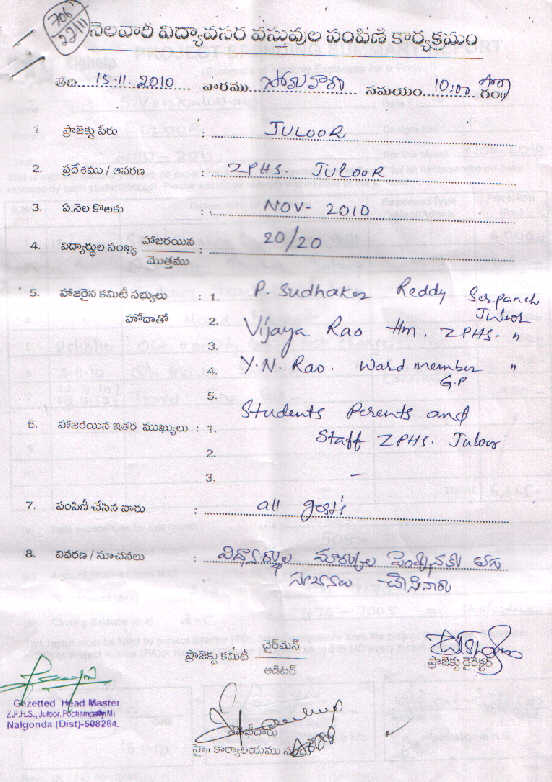 706
22/11
నెలవారీ విద్యావసర వస్తువుల పంపిణీ కార్యక్రమం
తేది. 15.11.2010 వారము. సోమవారం సమయం. 10:00
1. ప్రాజెక్టు పేరు : JULOOR
2. ప్రదేశము / వివరణ : ZPHS. JULOOR
3. ఏ.నెల కొఱకు : NOV- 2010
4. విద్యార్థుల సంఖ్య హాజరయిన / మొత్తము : 20/20
5. హాజరైన కమిటీ సభ్యులు : 1. P. Sudhaker Reddy Serpanch Juloor
హోదాతో 2. Vijaya Rao Hm. ZPHS. "
3.
4. Y.N. Rao. Ward member "
G.P
5.
6. హాజరయిన ఇతర ముఖ్యులు : 1. Students Perents and
Staff ZPHS. Juloor
2.
3. –
7. పంపిణీ చేసిన వారు : all
8. వివరణ / సూచనలు : విద్యార్థుల మార్కుల
సూచనలు చేసినారు
ప్రాజెక్టు కమిటీ చైర్‌మన్ / ఆడిటర్
ప్రాజెక్టు డైరెక్టర్
Gazetted Head Master
Z.P.H.S., Juloor, Pochampally(M)
Nalgonda (Dist)-508284.